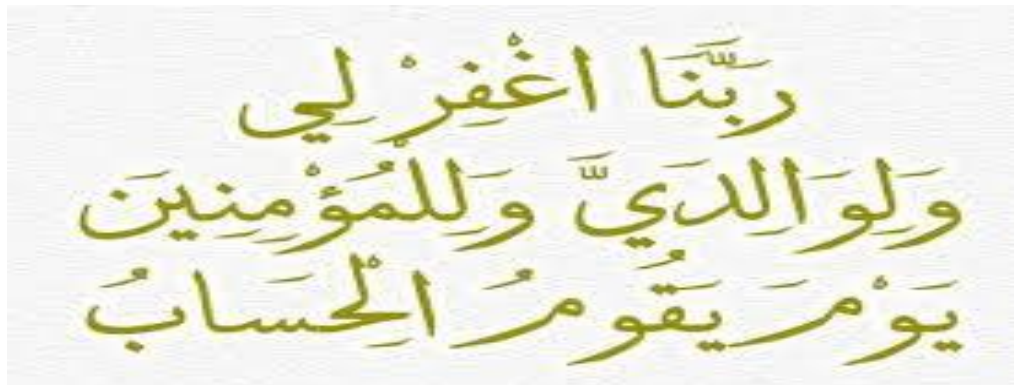 رَبَّنَا اغْفِرْ لِي
وَلِوَالِدَيَّ وَلِلْمُؤْمِنِينَ
يَوْمَ يَقُومُ الْحِسَابُ